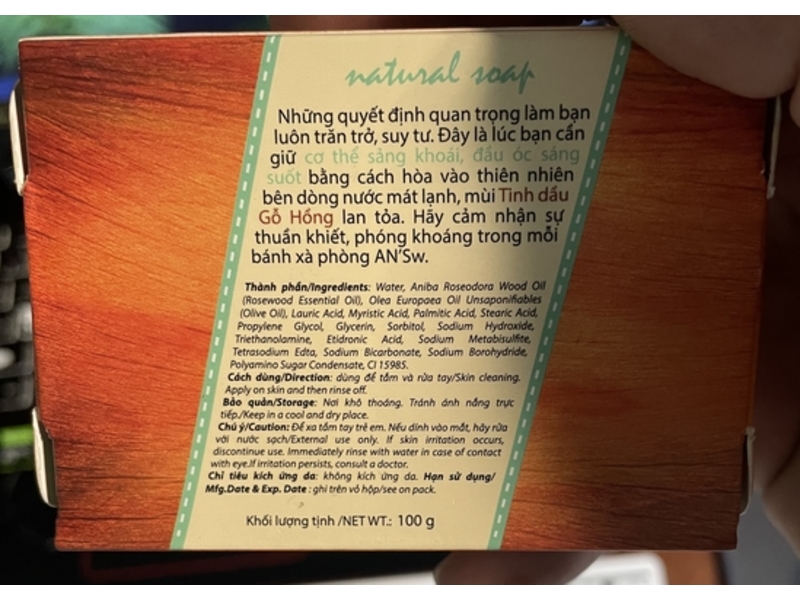 natural soap
Những quyết định quan trọng làm bạn
luôn trăn trở, suy tư. Đây là lúc bạn cần
giữ cơ thể sảng khoái, đầu óc sáng
suốt bằng cách hòa vào thiên nhiên
bên dòng nước mát lạnh, mùi Tinh dầu
Gỗ Hồng lan tỏa. Hãy cảm nhận sự
thuần khiết, phóng khoáng trong mỗi
bánh xà phòng AN'Sw.
Thành phần/Ingredients: Water, Aniba Roseodora Wood Oil
(Rosewood Essential Oil), Olea Europaea Oil Unsaponifiables
(Olive Oil), Lauric Acid, Myristic Acid, Palmitic Acid, Stearic Acid,
Propylene Glycol, Glycerin, Sorbitol, Sodium Hydroxide,
Triethanolamine, Etidronic Acid, Sodium Metabisulfite,
Tetrasodium Edta, Sodium Bicarbonate, Sodium Borohydride,
Polyamino Sugar Condensate, CI 15985.
Cách dùng/Direction: dùng để tắm và rửa tay/Skin cleaning.
Apply on skin and then rinse off.
Bảo quản/Storage: Nơi khô thoáng. Tránh ánh nắng trực
tiếp./Keep in a cool and dry place.
Chú ý/Caution: Để xa tầm tay trẻ em. Nếu dính vào mắt, hãy rửa
với nước sạch/External use only. If skin irritation occurs,
discontinue use. Immediately rinse with water in case of contact
with eye.If irritation persists, consult a doctor.
Chỉ tiêu kích ứng da: không kích ứng da. Hạn sử dụng/
Mfg.Date & Exp. Date : ghi trên vỏ hộp/see on pack.
Khối lượng tịnh /NET WT.: 100 g